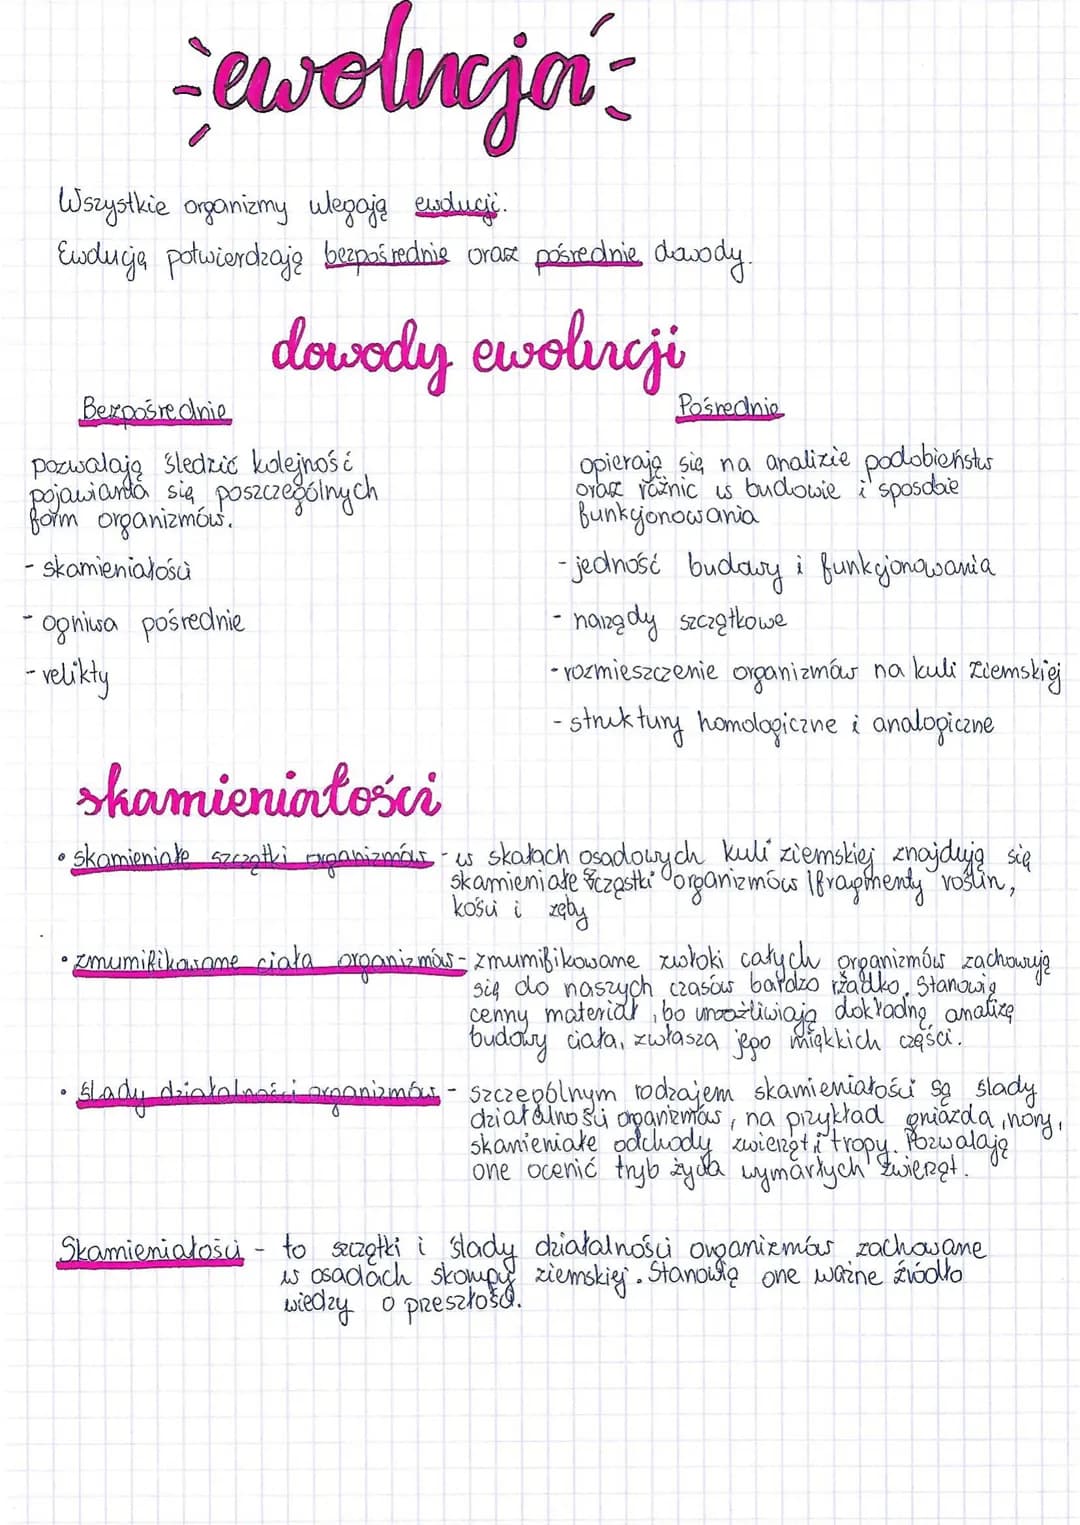 ewolucja
Wszystkie organizmy ulegają ewolucji.
Ewolucję potwierdzają bezpośrednie oraz pośrednie dowody.
dowody ewolucji
Bezpośrednie
pozwalają śledzić kolejność
pojawiania się poszczególnych
form organizmów.
- skamieniałości
- ogniwa pośrednie
- relikty
Pośrednie
opierają się na analizie podobieństw
oraz różnic w budowie i sposobie
funkcjonowania
- jedność budowy i funkcjonowania
- narządy szczątkowe
- rozmieszczenie organizmów na kuli ziemskiej
- struktury homologiczne i analogiczne
skamieniałości
• skamieniałe szczątki organizmów - w skałach osadowych kuli ziemskiej znajdują się
skamieniałe szcząstki organizmów (fragmenty roślin,
kości i zęby
• zmumifikowane ciała organizmów - zmumifikowane zwłoki całych organizmów zachowują
się do naszych czasów bardzo rzadko. Stanowią
cenny materiał, bo umożliwiają dokładną analizę
budowy ciała, zwłasza jego miękkich części.
• ślady działalności organizmów - szczególnym rodzajem skamieniałości są ślady
działalności organizmów, na przykład gniazda, nory,
skamieniałe odchody zwierząt i tropy. Pozwalają
one ocenić tryb życia wymarłych zwierząt.
Skamieniałości - to szczątki i ślady działalności organizmów zachowane
w osadach skorupy ziemskiej. Stanowią one ważne źródło
wiedzy o przeszłości.